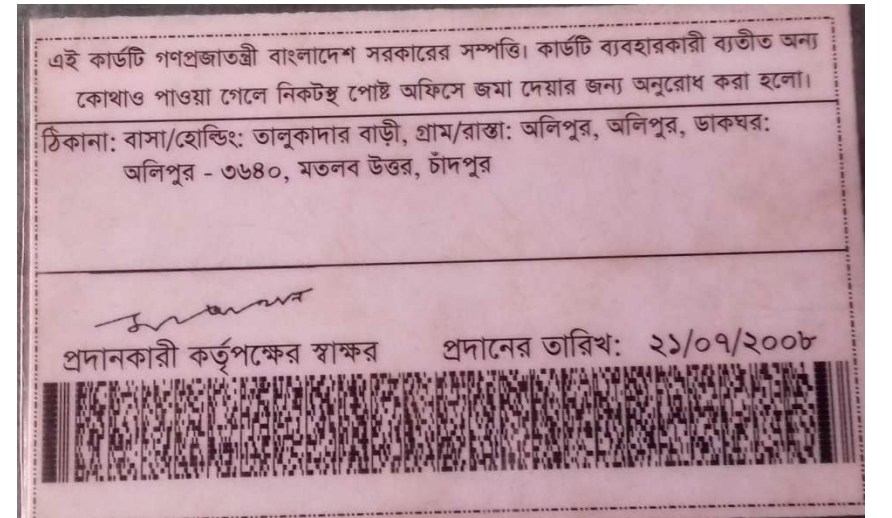 এই কার্ডটি গণপ্রজাতন্ত্রী বাংলাদেশ সরকারের সম্পত্তি। কার্ডটি ব্যবহারকারী ব্যতীত অন্য
কোথাও পাওয়া গেলে নিকটস্থ পোষ্ট অফিসে জমা দেয়ার জন্য অনুরোধ করা হলো।
ঠিকানা: বাসা/হোল্ডিং: তালুকাদার বাড়ী, গ্রাম/রাস্তা: অলিপুর, অলিপুর, ডাকঘর:
অলিপুর - ৩৬৪০, মতলব উত্তর, চাঁদপুর
প্রদানকারী কর্তৃপক্ষের স্বাক্ষর প্রদানের তারিখ: ২১/০৭/২০০৮